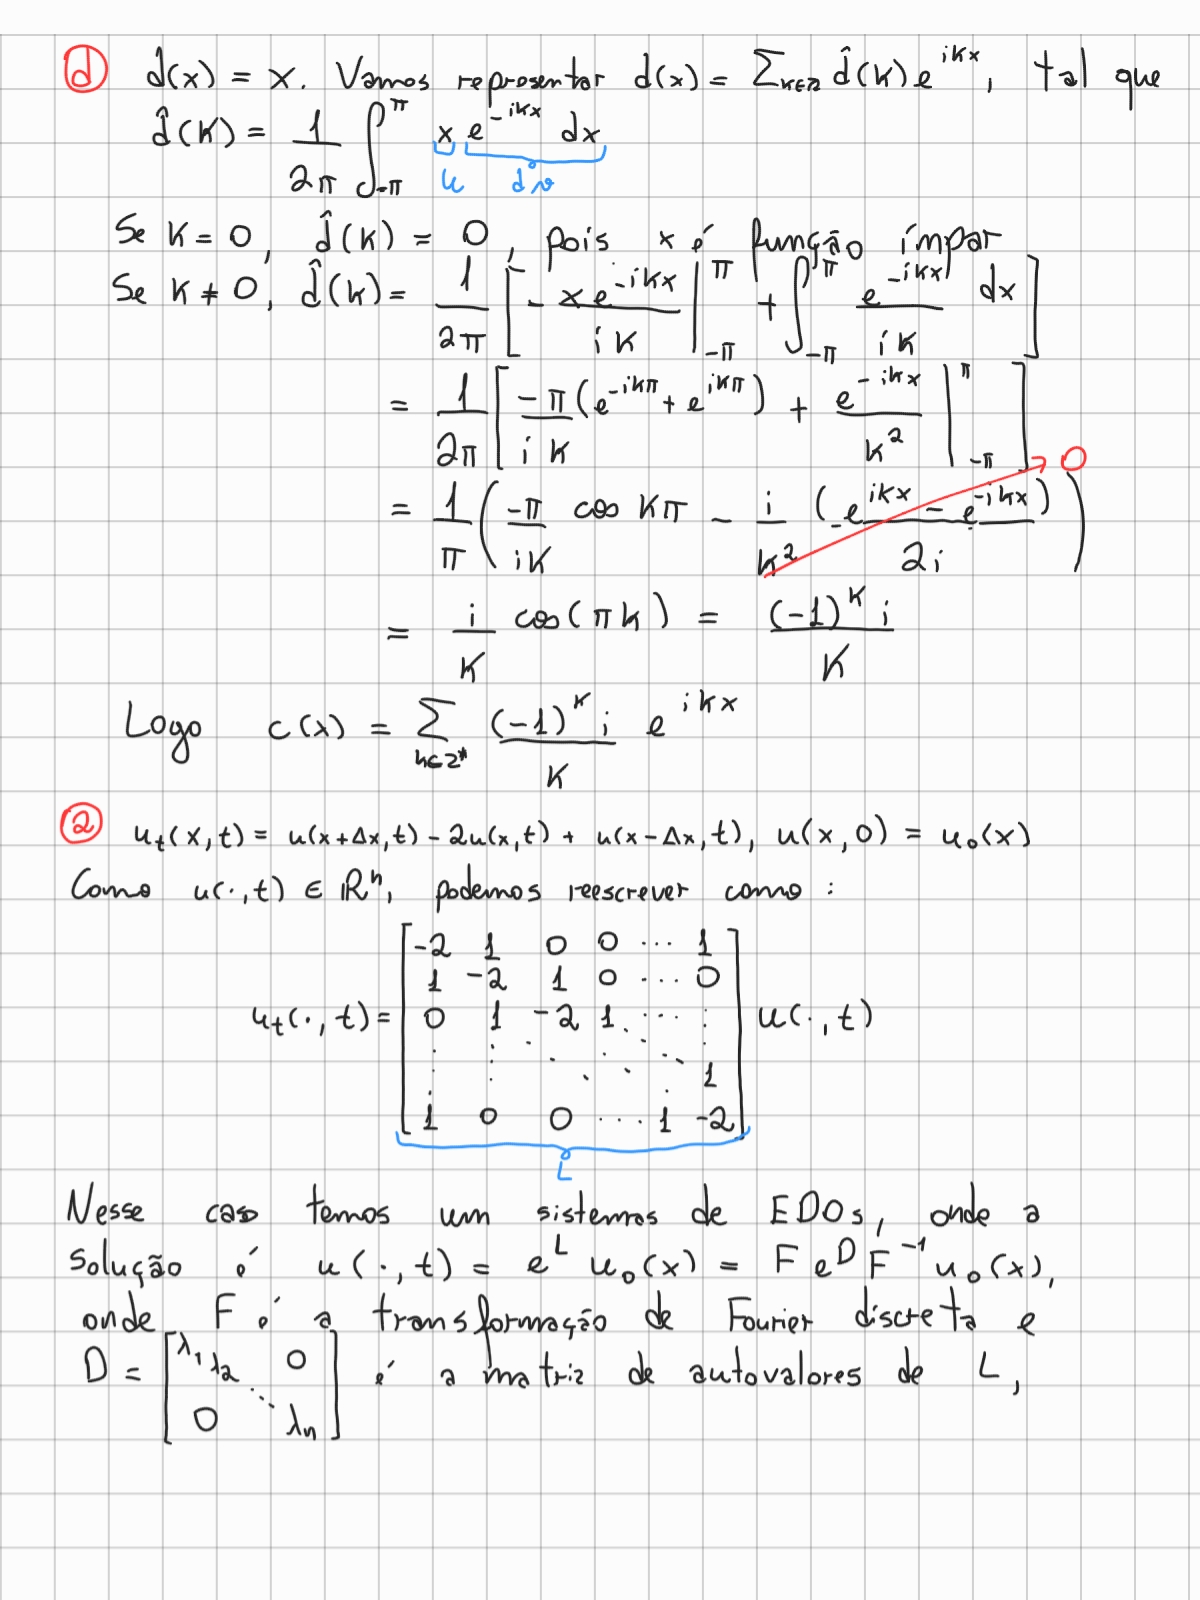 (d) d(x) = x. Vamos representar d(x) = Σ_{k∈ℤ} d̂(k) e^{ikx}, tal que
d̂(k) = 1/2π ∫_{-π}^{π} x e^{-ikx} dx
u dv
Se k = 0, d̂(k) = 0, pois x é função ímpar
Se k ≠ 0, d̂(k) = 1/2π [ - x e^{-ikx}/ik |_{-π}^{π} + ∫_{-π}^{π} e^{-ikx}/ik dx ]
= 1/2π [ -π/ik (e^{-ikπ} + e^{ikπ}) + e^{-ikx}/k² |_{-π}^{π} ]
= 1/π ( -π/ik cos kπ - i/k² (-e^{ikx} - e^{-ikx})/2i ) → 0
= i/k cos(πk) = (-1)^k i/k
Logo c(x) = Σ_{k∈ℤ*} (-1)^k i/k e^{ikx}
(2) u_t(x,t) = u(x+Δx,t) - 2u(x,t) + u(x-Δx,t), u(x,0) = u₀(x)
Como u(·,t) ∈ ℝⁿ, podemos reescrever como :
-2 1 0 0 ... 1
1 -2 1 0 ... 0
u_t(·,t) = 0 1 -2 1 ... : u(·,t)
: : ⋱ ⋱ 1
1 0 0 ... 1 -2
L
Nesse caso temos um sistemas de EDOs, onde a
solução é u(·,t) = e^L u₀(x) = F e^D F^{-1} u₀(x),
onde F é a transformação de Fourier discreta e
D = [λ₁ λ₂ ⋱ λn 0 0] é a matriz de autovalores de L,